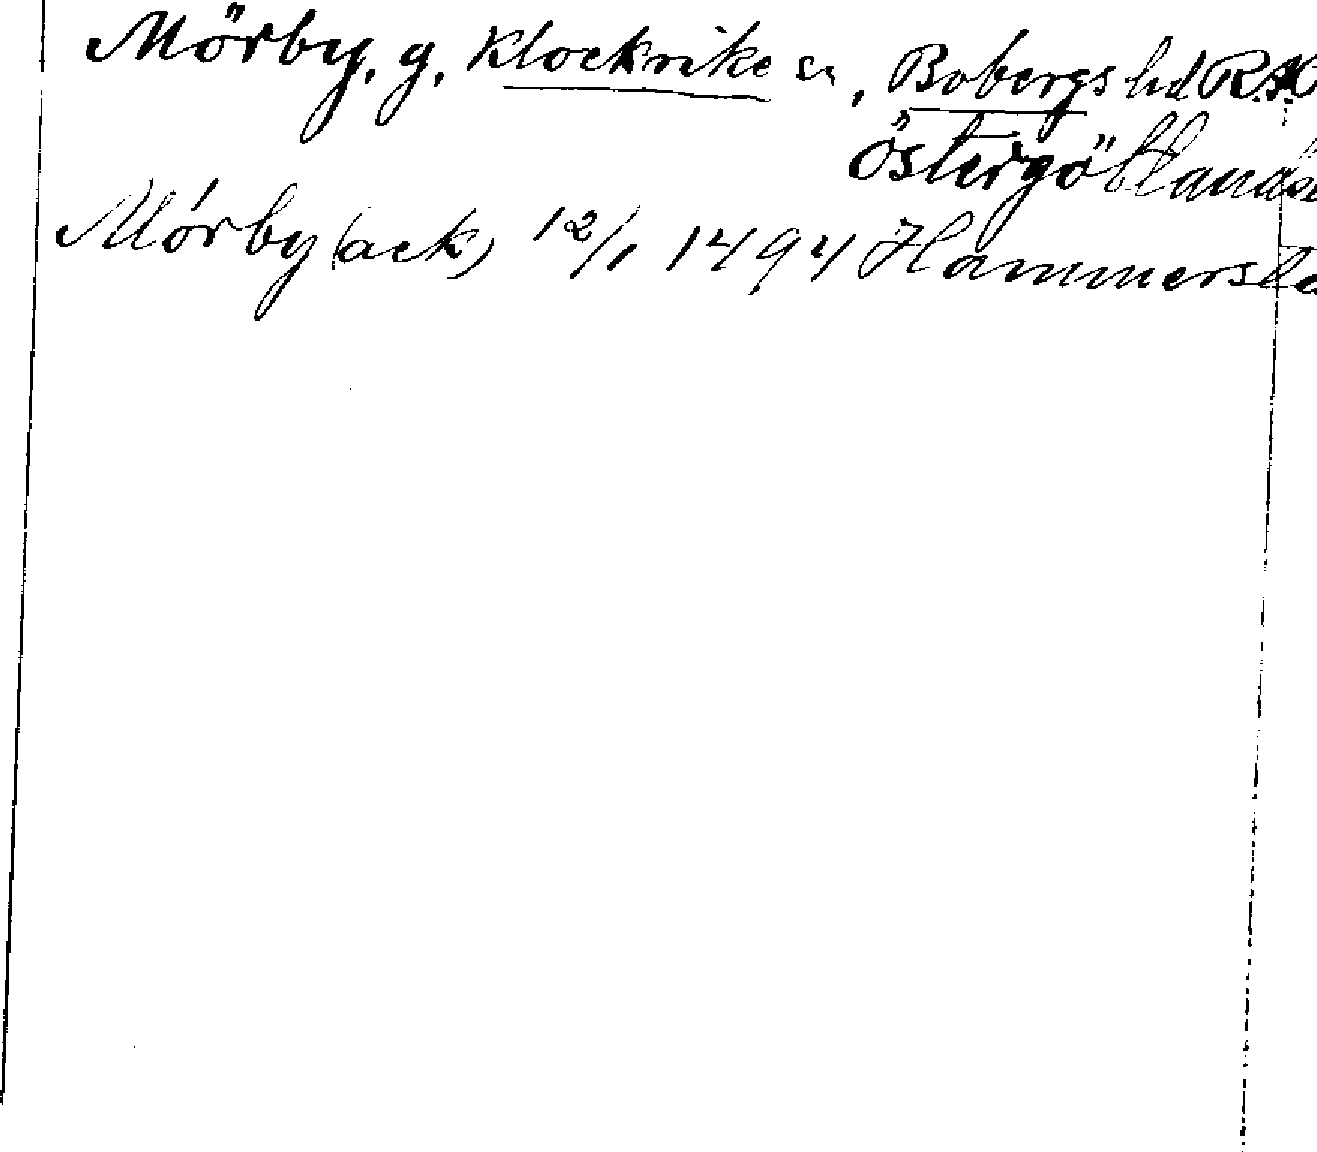 Mörby, g, Klockrike sn, Bobergs hd
Östergötlands
Mörby (ack) 12/1 1494 Hammersta